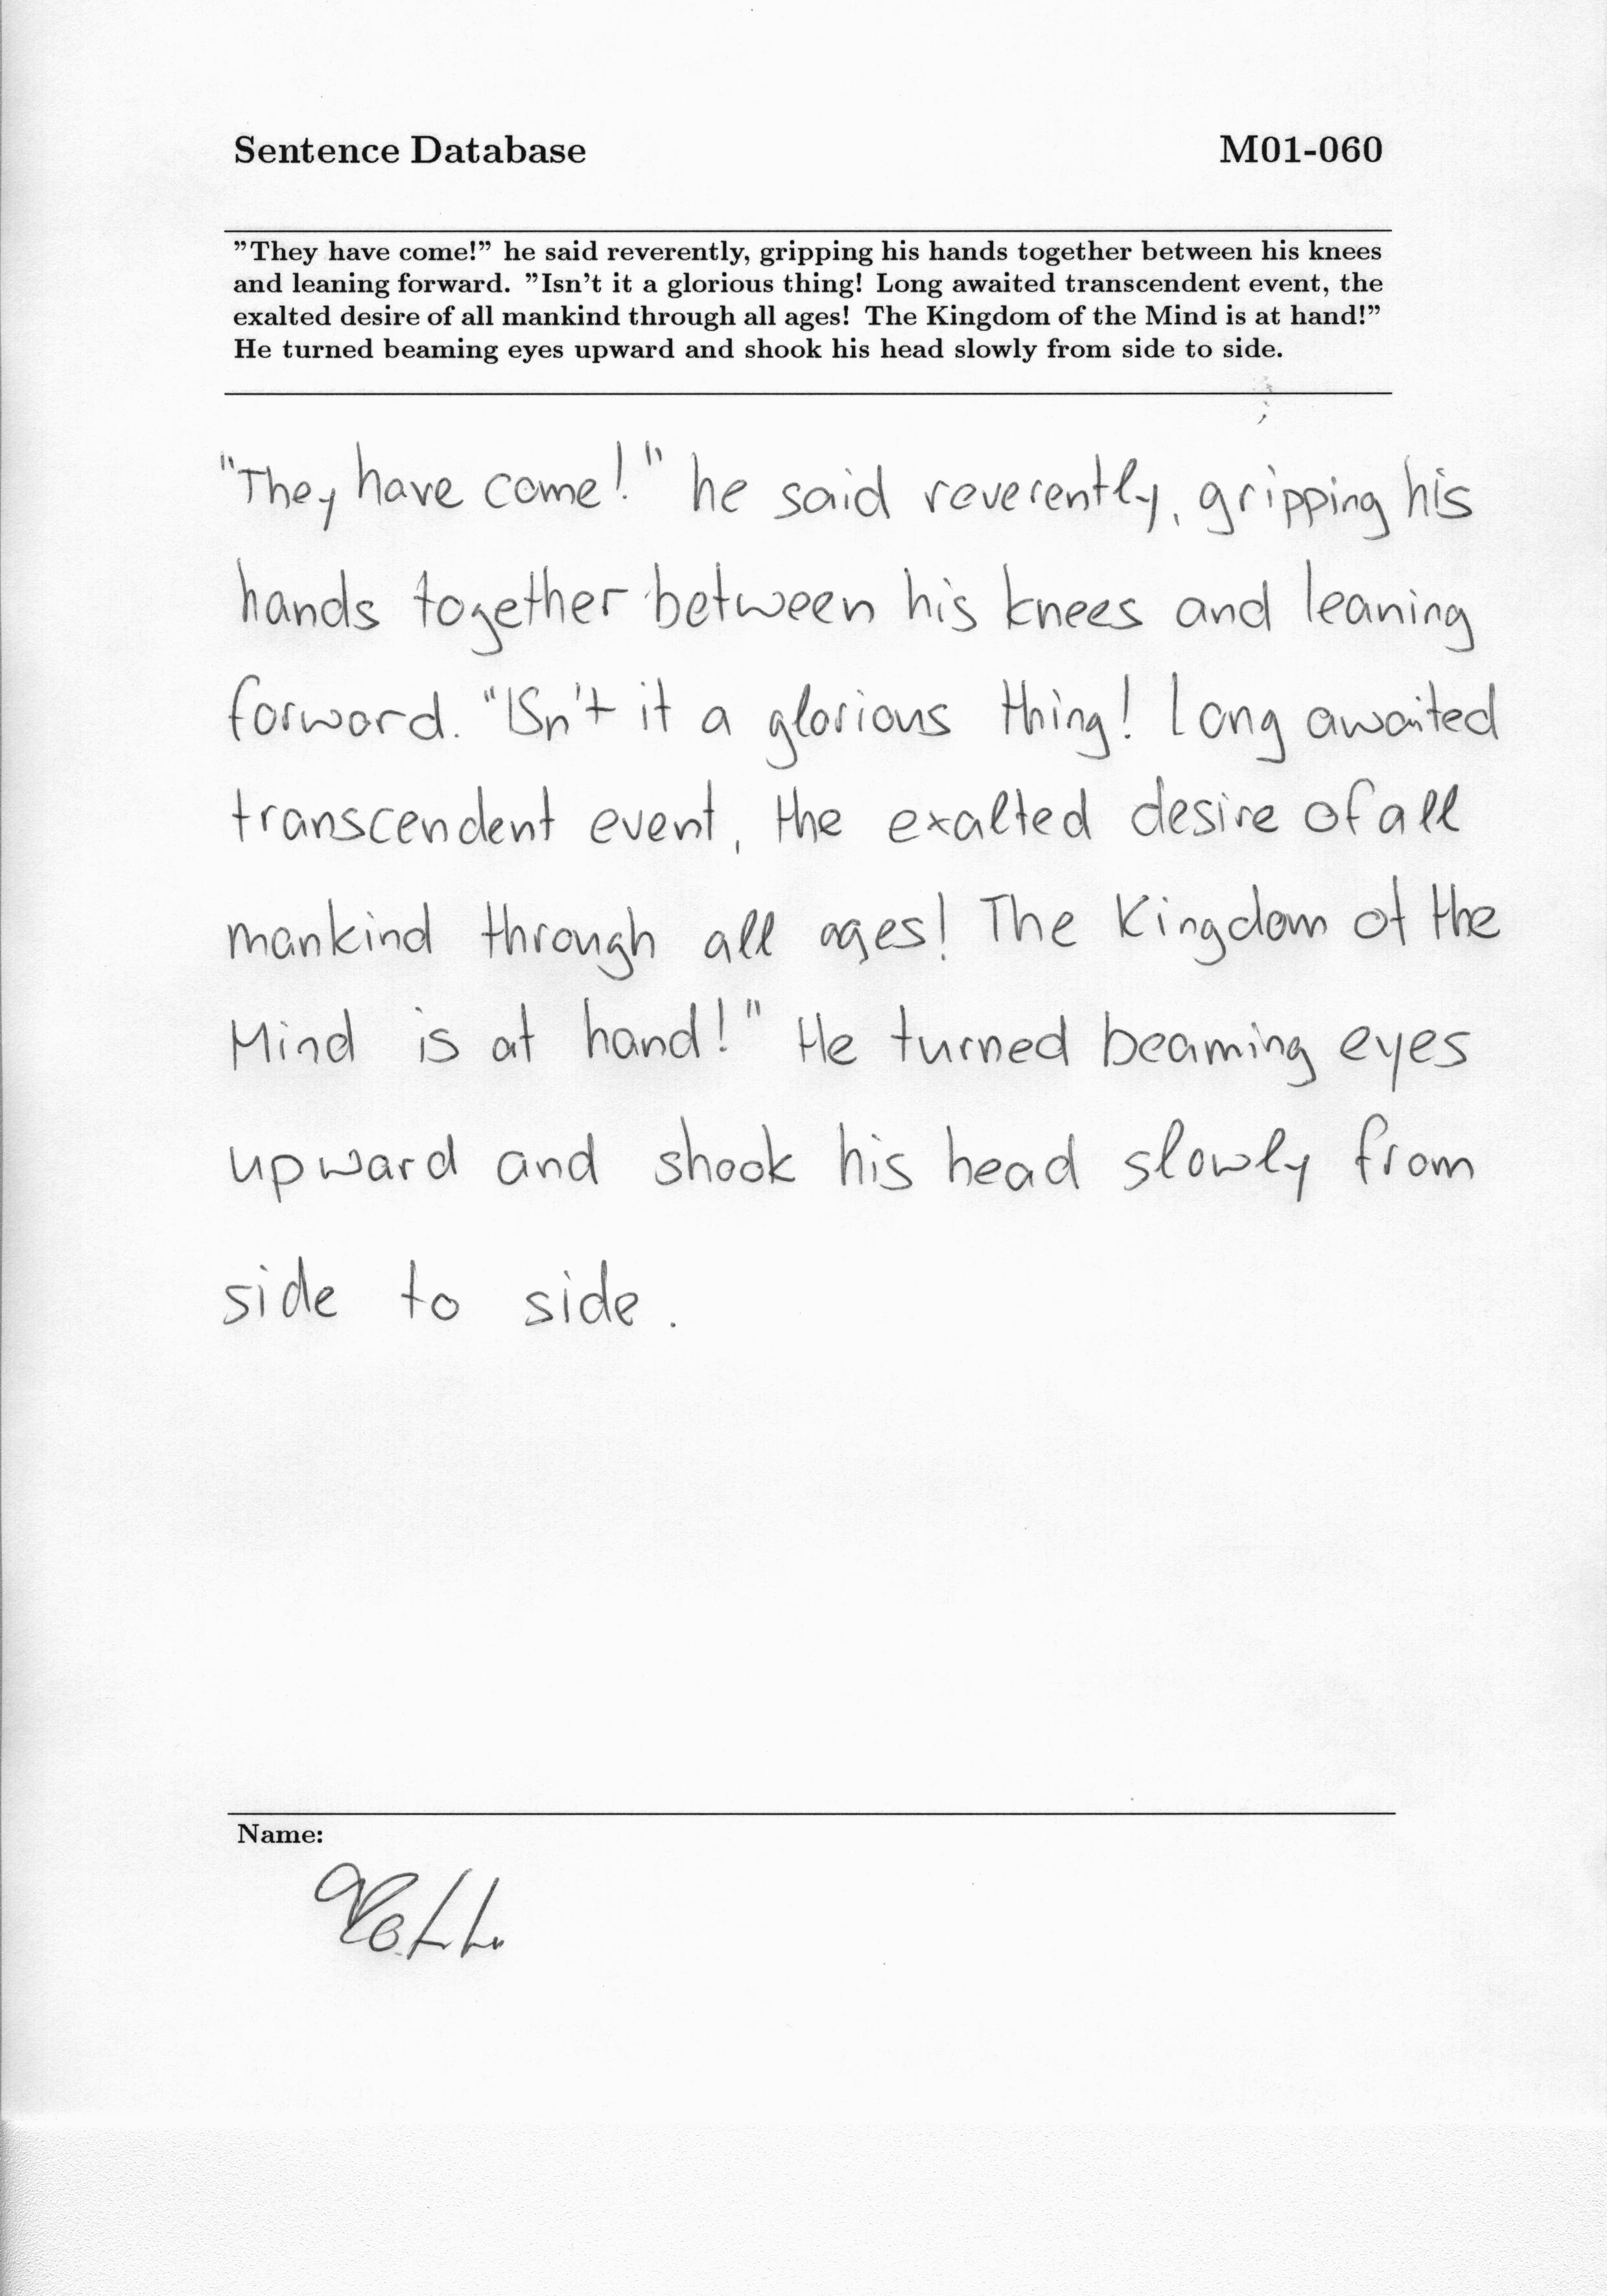 Sentence Database M01-060
"They have come!" he said reverently, gripping his hands together between his knees
and leaning forward. "Isn't it a glorious thing! Long awaited transcendent event, the
exalted desire of all mankind through all ages! The Kingdom of the Mind is at hand!"
He turned beaming eyes upward and shook his head slowly from side to side.
"They have come!" he said reverently, gripping his
hands together between his knees and leaning
forward. "Isn't it a glorious thing! Long awaited
transcendent event, the exalted desire of all
mankind through all ages! The Kingdom of the
Mind is at hand!" He turned beaming eyes
upward and shook his head slowly from
side to side.
Name: